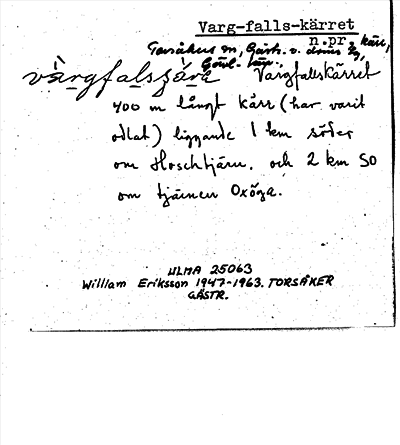 Varg-falls-kärret
n.pr. kärr,
Torsåkers sn, Gästr. 
Gävl. län.
Vargfallskärret
400 m långt kärr (har varit
odlat) liggande 1 km söder
om Hoschtjärn, och 2 km SO
om tjärnen Oxöga.
ULMA 25063
William Eriksson 1947-1963. TORSÅKER
GÄSTR.